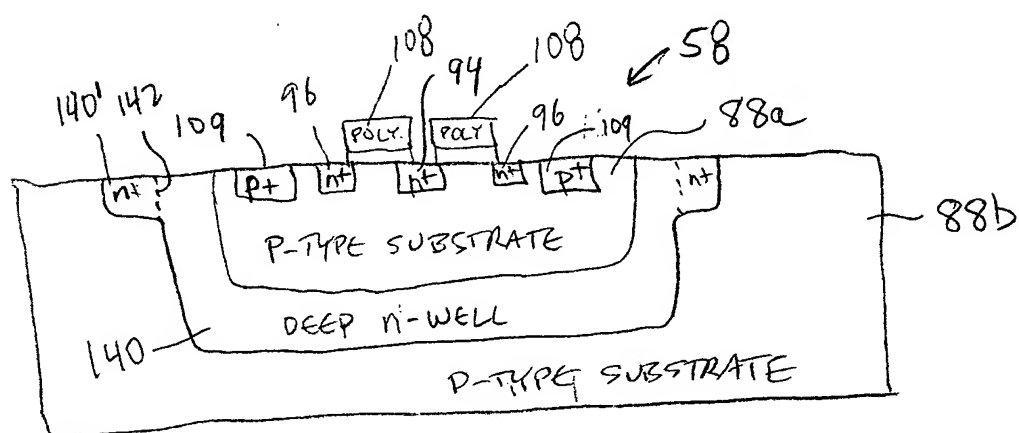 108
108
58
94
140' 142
109
96
96
109
88a
POLY.
POLY
n+
p+
n+
n+
n+
p+
n+
88b
P-TYPE SUBSTRATE
DEEP n-WELL
140
P-TYPE SUBSTRATE